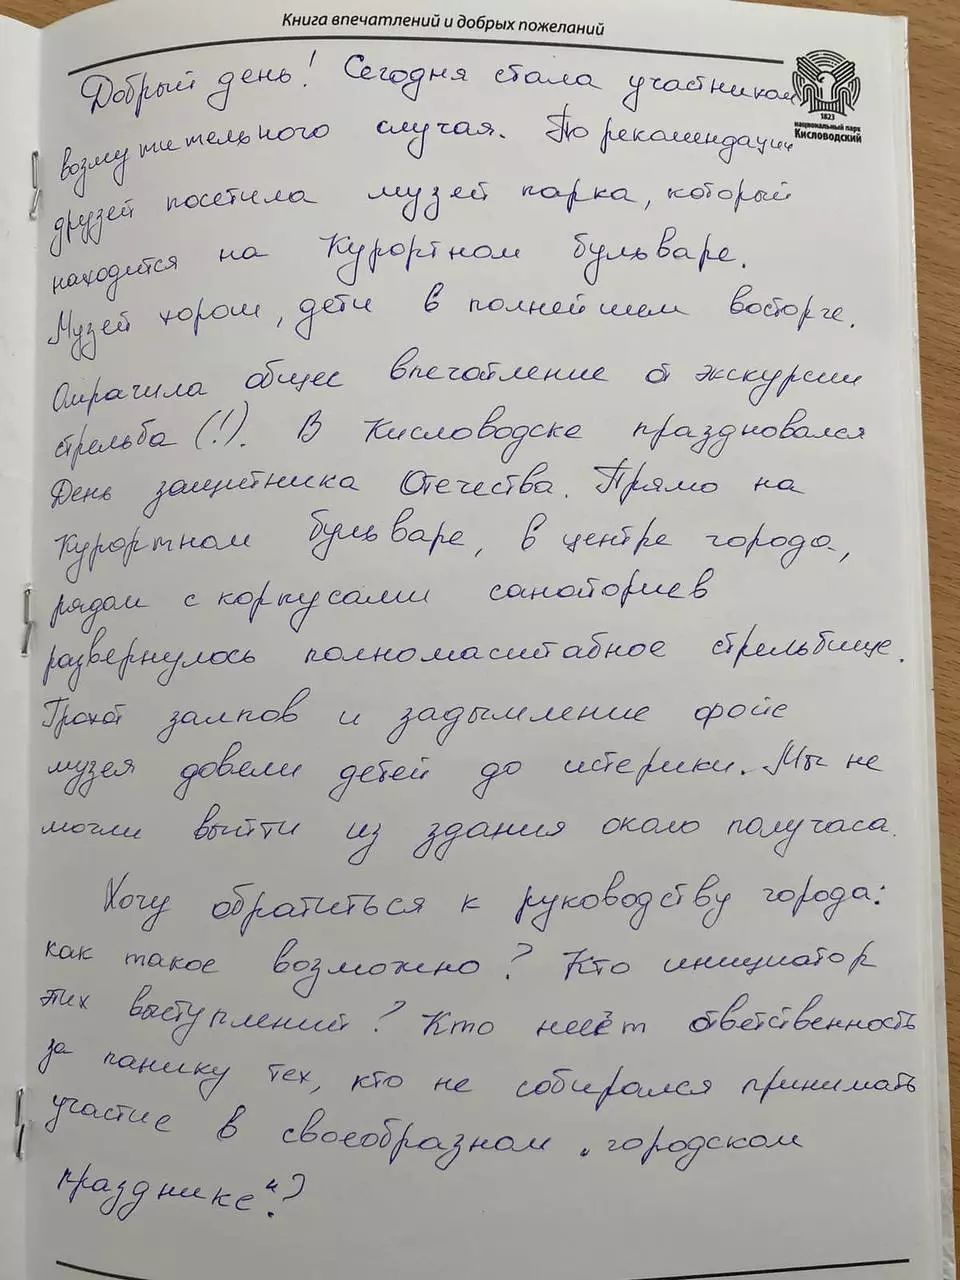 Книга впечатлений и добрых пожеланий
1823
национальный парк
Кисловодский
Добрый день! Сегодня стала участником
возмутительного случая. По рекомендации
друзей посетила музей парка, который
находится на Курортном бульваре.
Музей хорош, дети в полнейшем восторге.
Омрачила общее впечатление от экскурсии
стрельба (!). В Кисловодске праздновался
День защитника Отечества. Прямо на
Курортном бульваре, в центре города,
рядом с корпусами санаториев
развернулось полномасштабное стрельбище.
Грохот залпов и задымление фойе
музея довели детей до истерики. Мы не
могли выйти из здания около получаса.
Хочу обратиться к руководству города:
как такое возможно? Кто инициатор
этих выступлений? Кто несёт ответственность
за панику тех, кто не собирался принимать
участие в своеобразном „городском
празднике“?